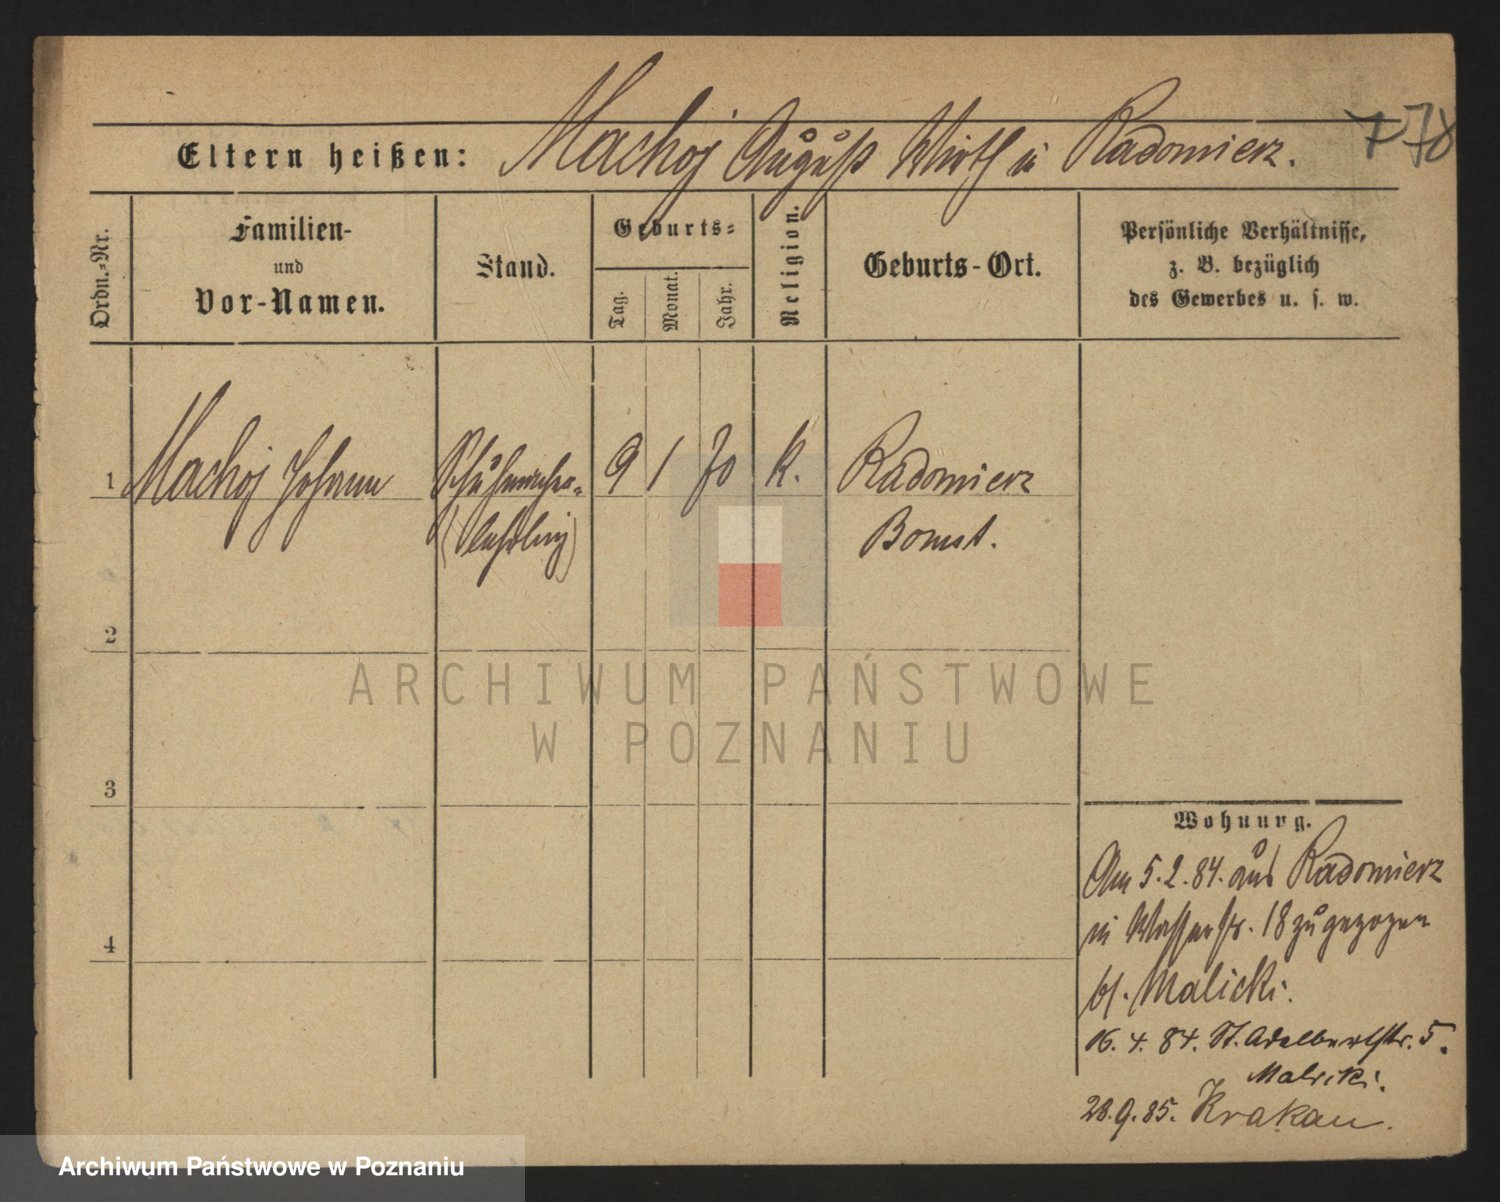 778
Eltern heißen: Machoj August Wirth in Radomierz.
Ordn.-Nr.
Familien-
und
Vor-Namen.
Stand.
Geburts-
Tag.
Monat.
Jahr.
Religion.
Geburts-Ort.
Persönliche Verhältnisse,
z. B. bezüglich
des Gewerbes u. s. w.
1 Machoj Johann Schuhmacher- 9 1 70 k. Radomierz
(Lehrling) Bomst.
2
3
4
Wohnung.
Am 5.2.84. aus Radomierz
in Wasserstr. 18 zugezogen
bf. Malicki.
16. 4. 84. St. Adalbertstr. 5.
Malicki.
28.9.85. Krakau.
ARCHIWUM PAŃSTWOWE
W POZNANIU
Archiwum Państwowe w Poznaniu